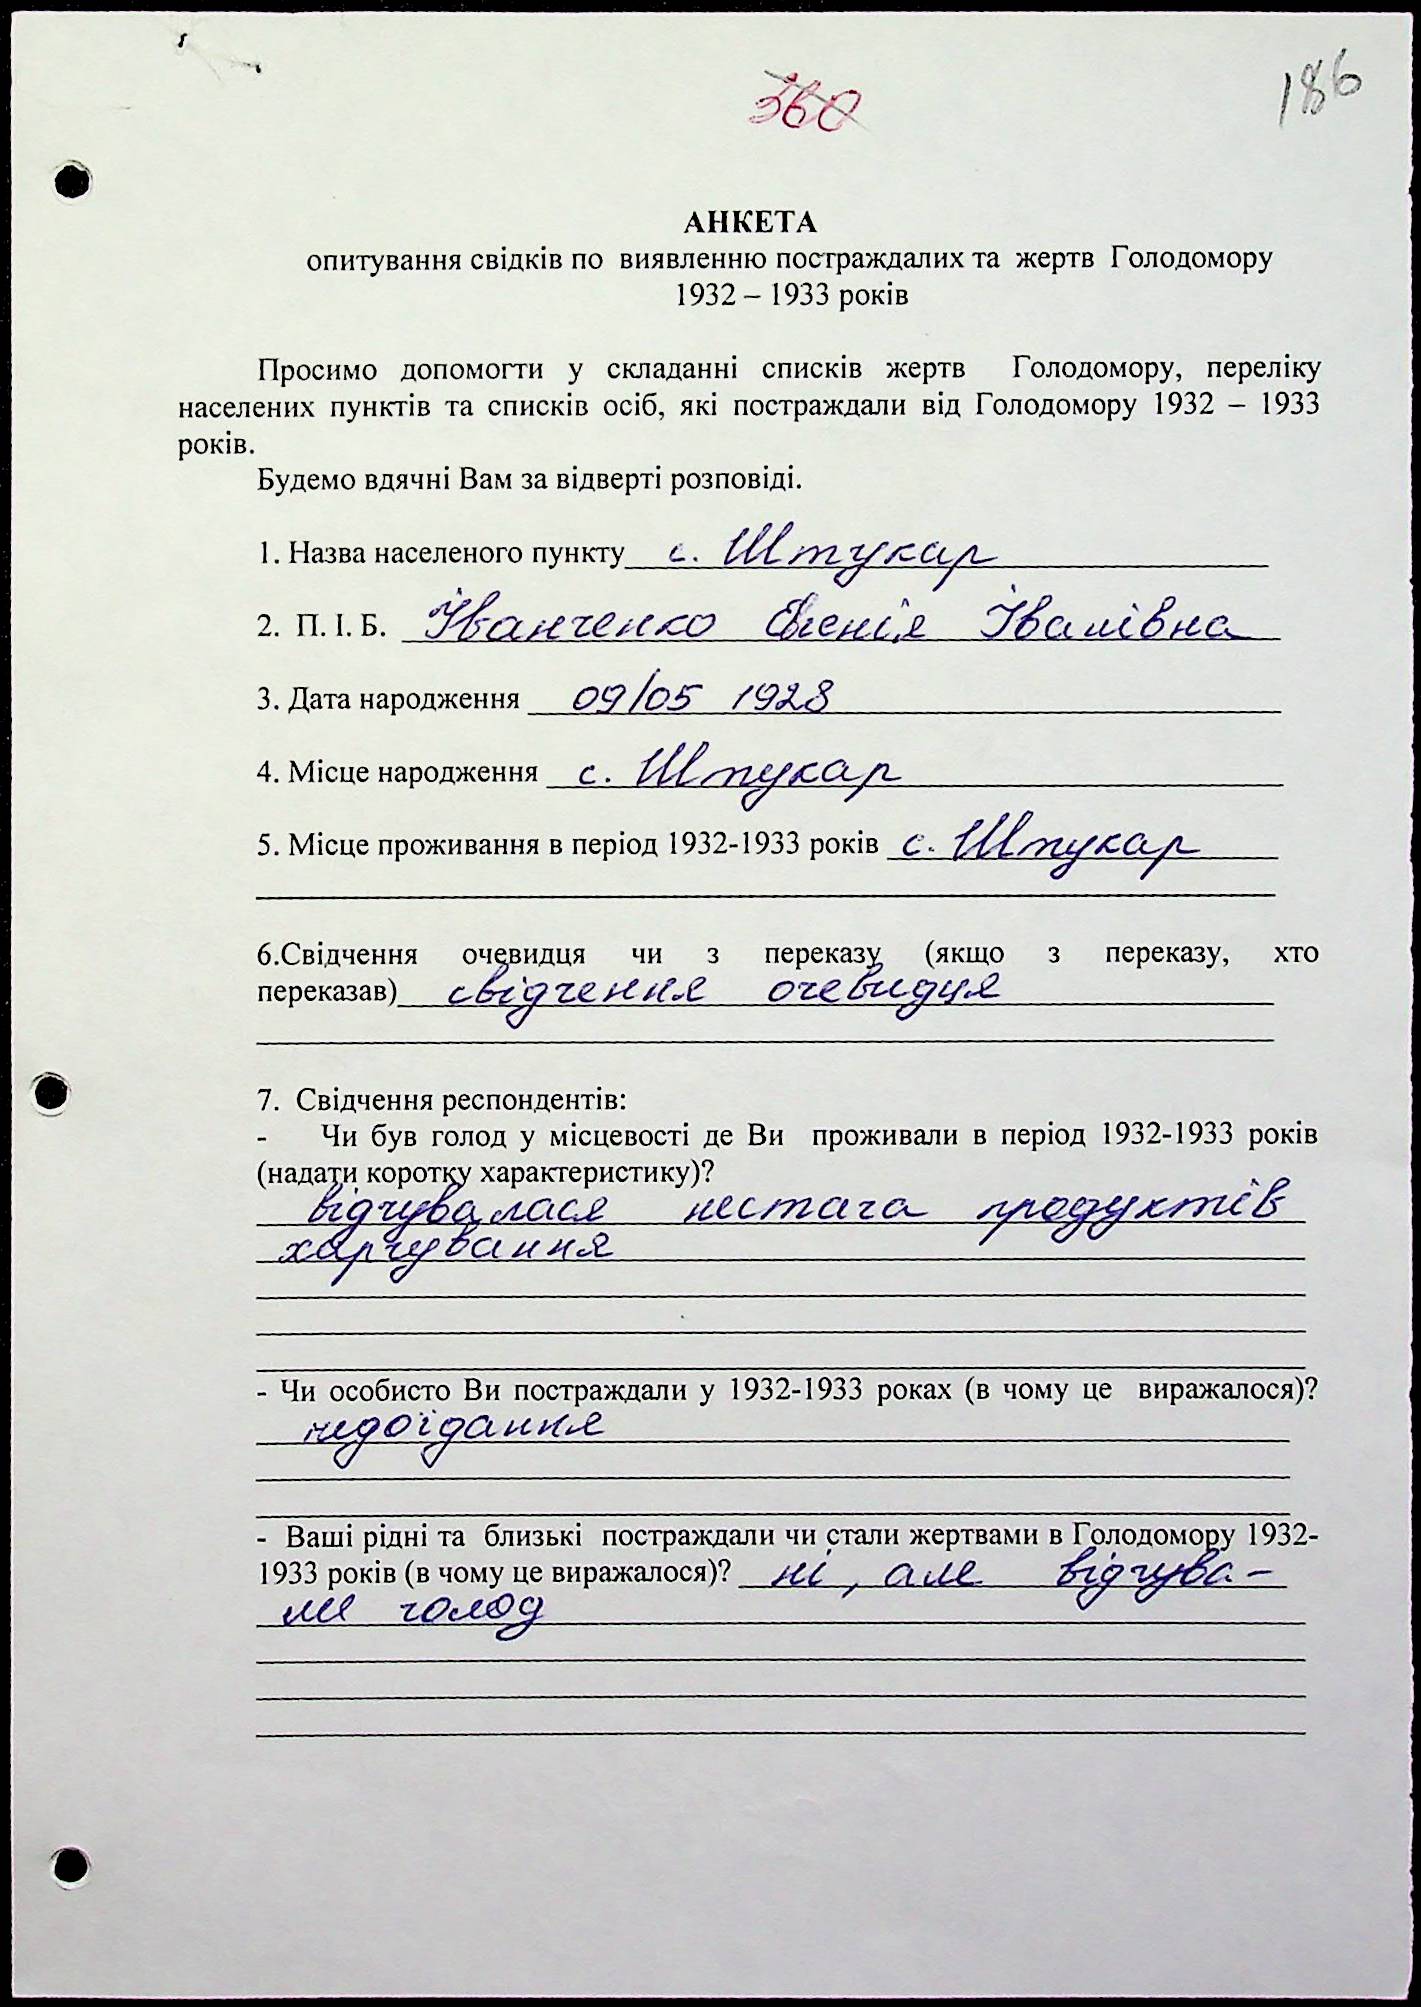 360
186
АНКЕТА
опитування свідків по виявленню постраждалих та жертв Голодомору
1932 – 1933 років
Просимо допомогти у складанні списків жертв Голодомору, переліку
населених пунктів та списків осіб, які постраждали від Голодомору 1932 – 1933
років.
Будемо вдячні Вам за відверті розповіді.
1. Назва населеного пункту с. Штукар
2. П. І. Б. Іванченко Євгенія Івалівна
3. Дата народження 09/05 1928
4. Місце народження с. Штукар
5. Місце проживання в період 1932-1933 років с. Штукар
6.Свідчення очевидця чи з переказу (якщо з переказу, хто
переказав) свідчення очевидця
7. Свідчення респондентів:
- Чи був голод у місцевості де Ви проживали в період 1932-1933 років
(надати коротку характеристику)?
відчувалася нестача продуктів
харчування
- Чи особисто Ви постраждали у 1932-1933 роках (в чому це виражалося)?
недоїдання
- Ваші рідні та близькі постраждали чи стали жертвами в Голодомору 1932-
1933 років (в чому це виражалося)? ні, але відчува-
ли голод